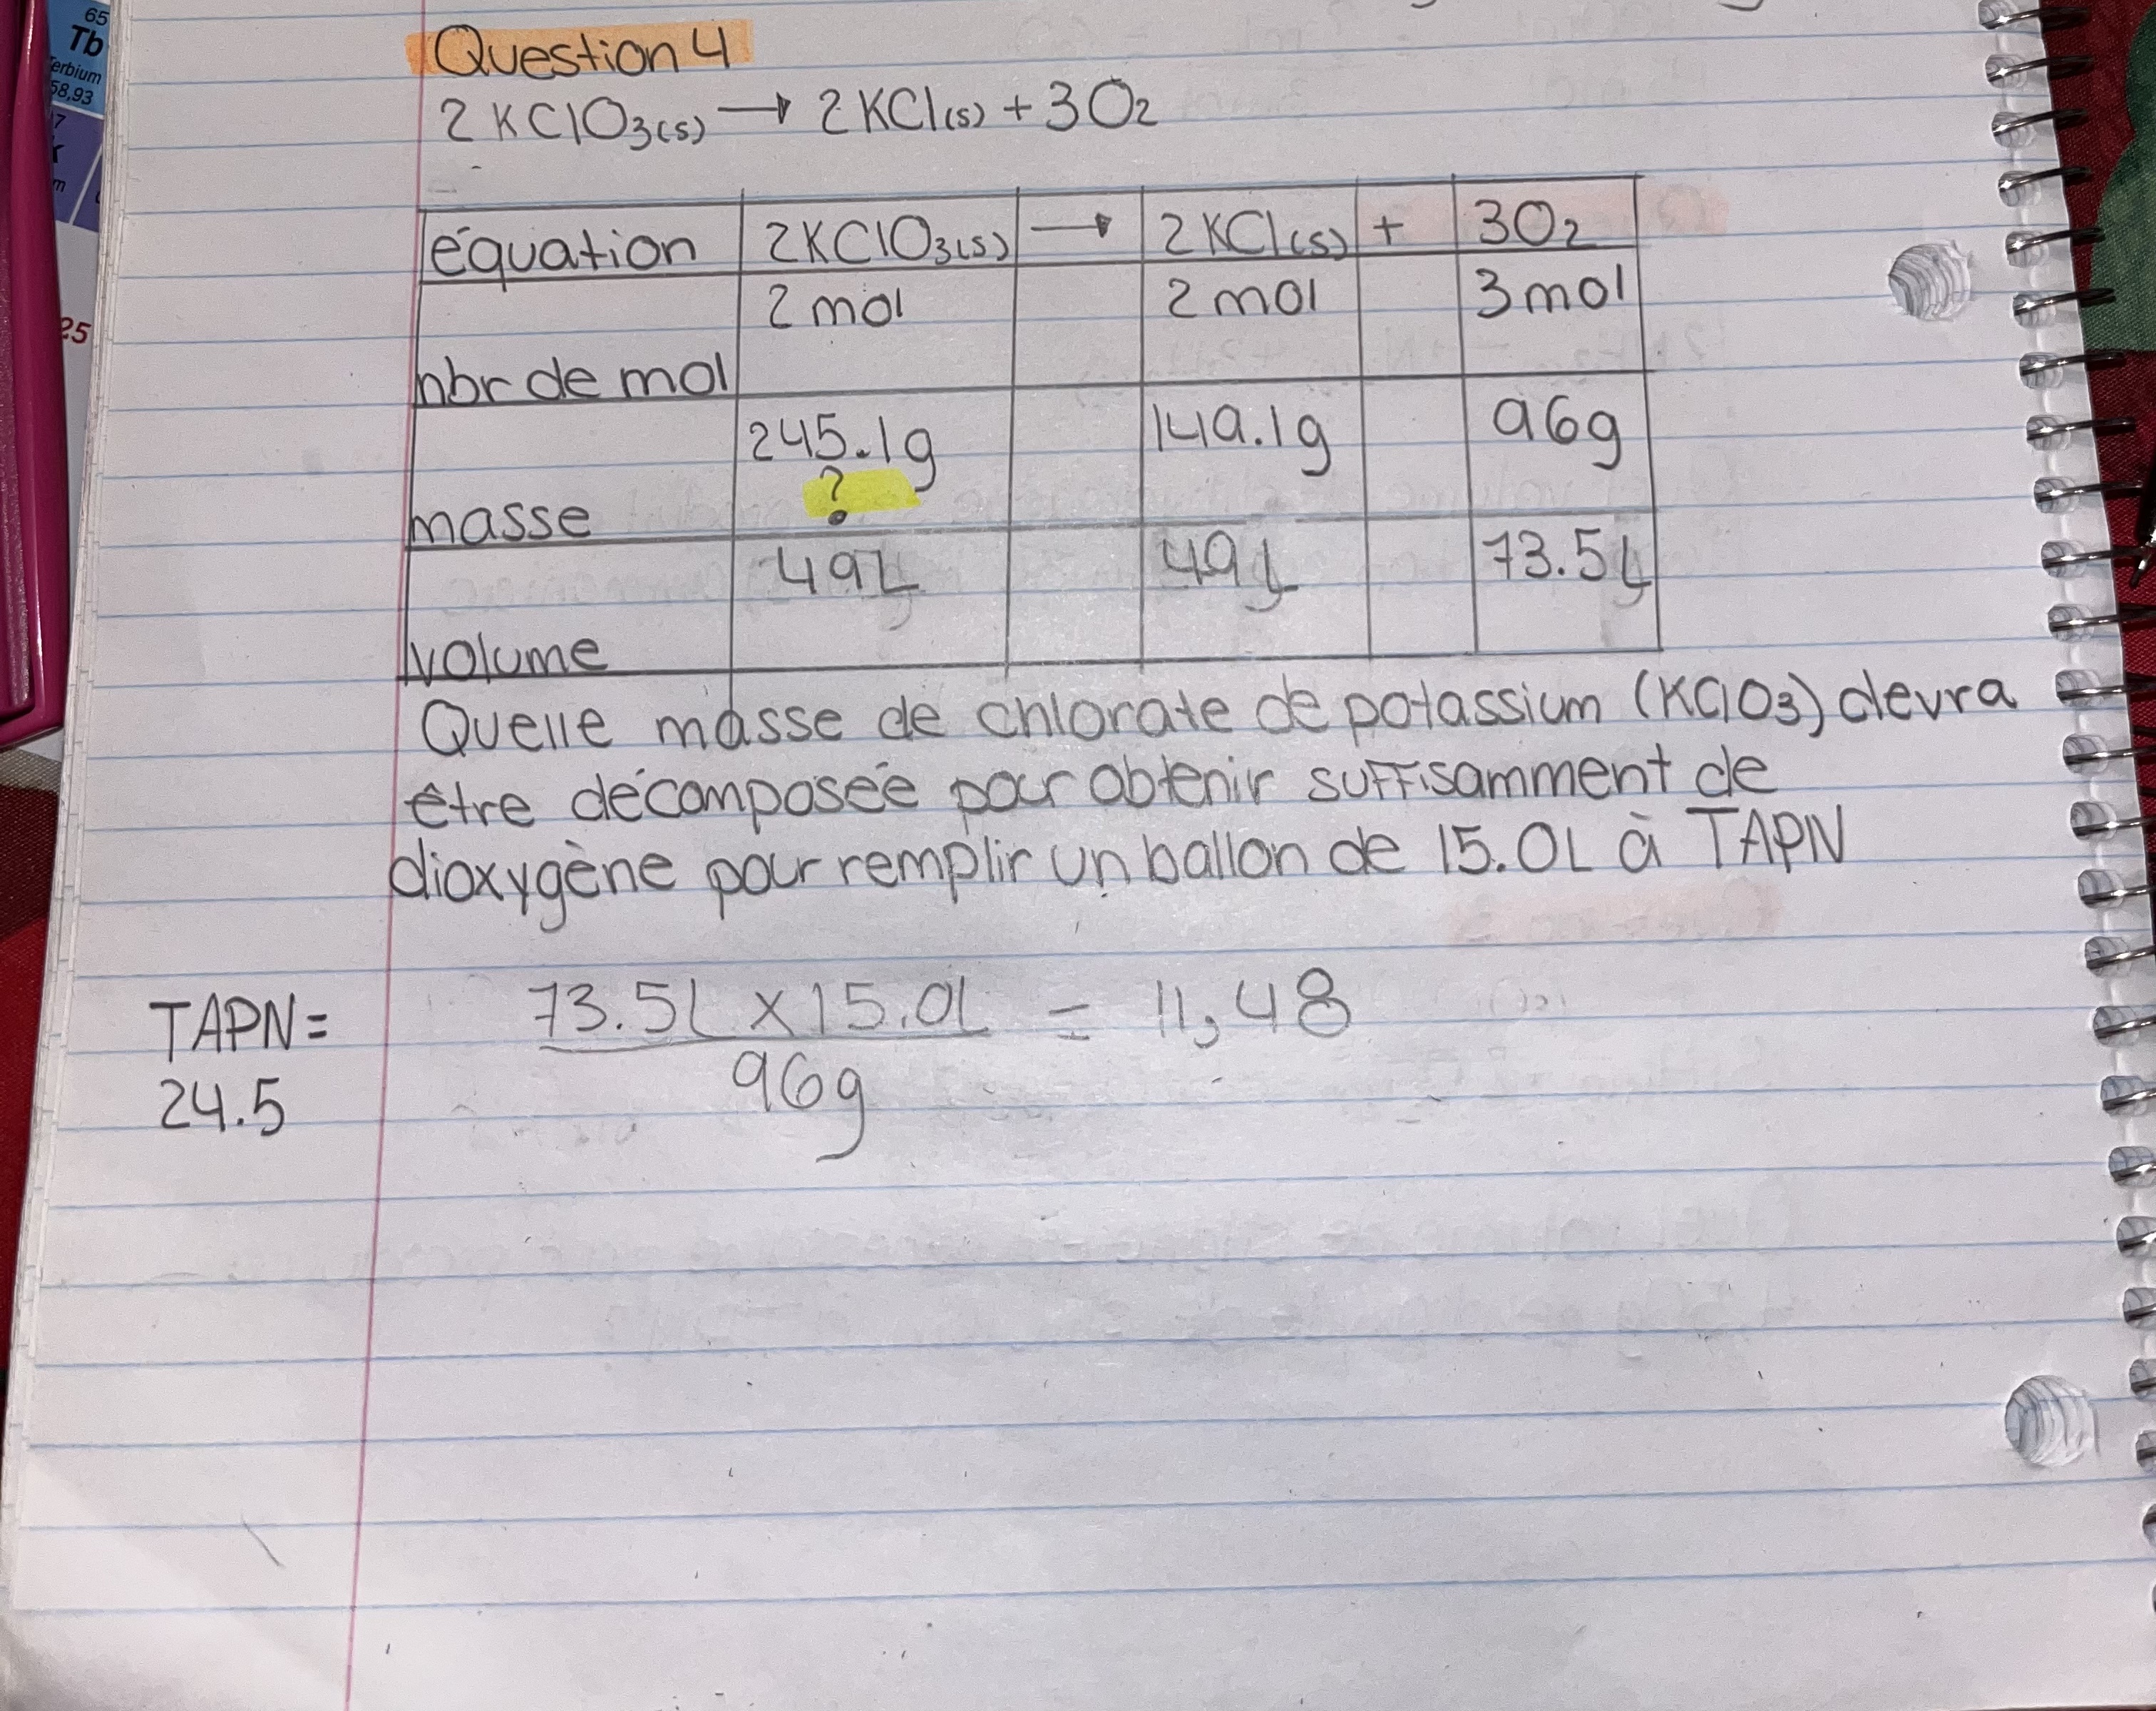 65
Tb
erbium
58,93
25
Question 4
2 KClO3(s) → 2 KCl(s) + 3O2
équation 2KClO3(s) → 2 KCl(s) + 3O2
2 mol 2 mol 3 mol
nbr de mol
245.1g 149.1g 96g
?
masse
49L 49L 73.5L
volume
Quelle masse de chlorate de potassium (KClO3) devra
être décomposée pour obtenir suffisamment de
dioxygène pour remplir un ballon de 15.0L à TAPN
TAPN=
24.5
73.5L x 15.0L = 11,48
96g